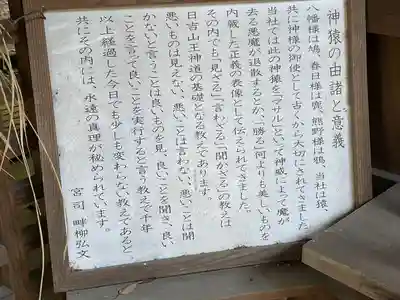 神猿の由諸と意義
八幡様は鳩、春日様は鹿、熊野様は鴉、当社は猿、
共に神様の御使として古くから大切にされてきました
当社では此の神猿を「マサル」といって神威によって魔が
去る悪魔が退散するとか、「勝る」何よりも美しいものを
内蔵した正義の表像として伝えられてきました。
その内でも「見ざる」「言わざる」「聞かざる」の教えは
日吉山王神道の基礎となる教えであります。
悪いものは見えない、悪いことは言わない、悪いことは聞
かないと言うことは良いものを見、良いことを聞き、良い
ことを言って良いことを実行すると言う教えで千年
以上経過した今日でも少しも変わらない教えであると
共にその内には、永遠の真理が秘められています。
宮司 畔柳弘文